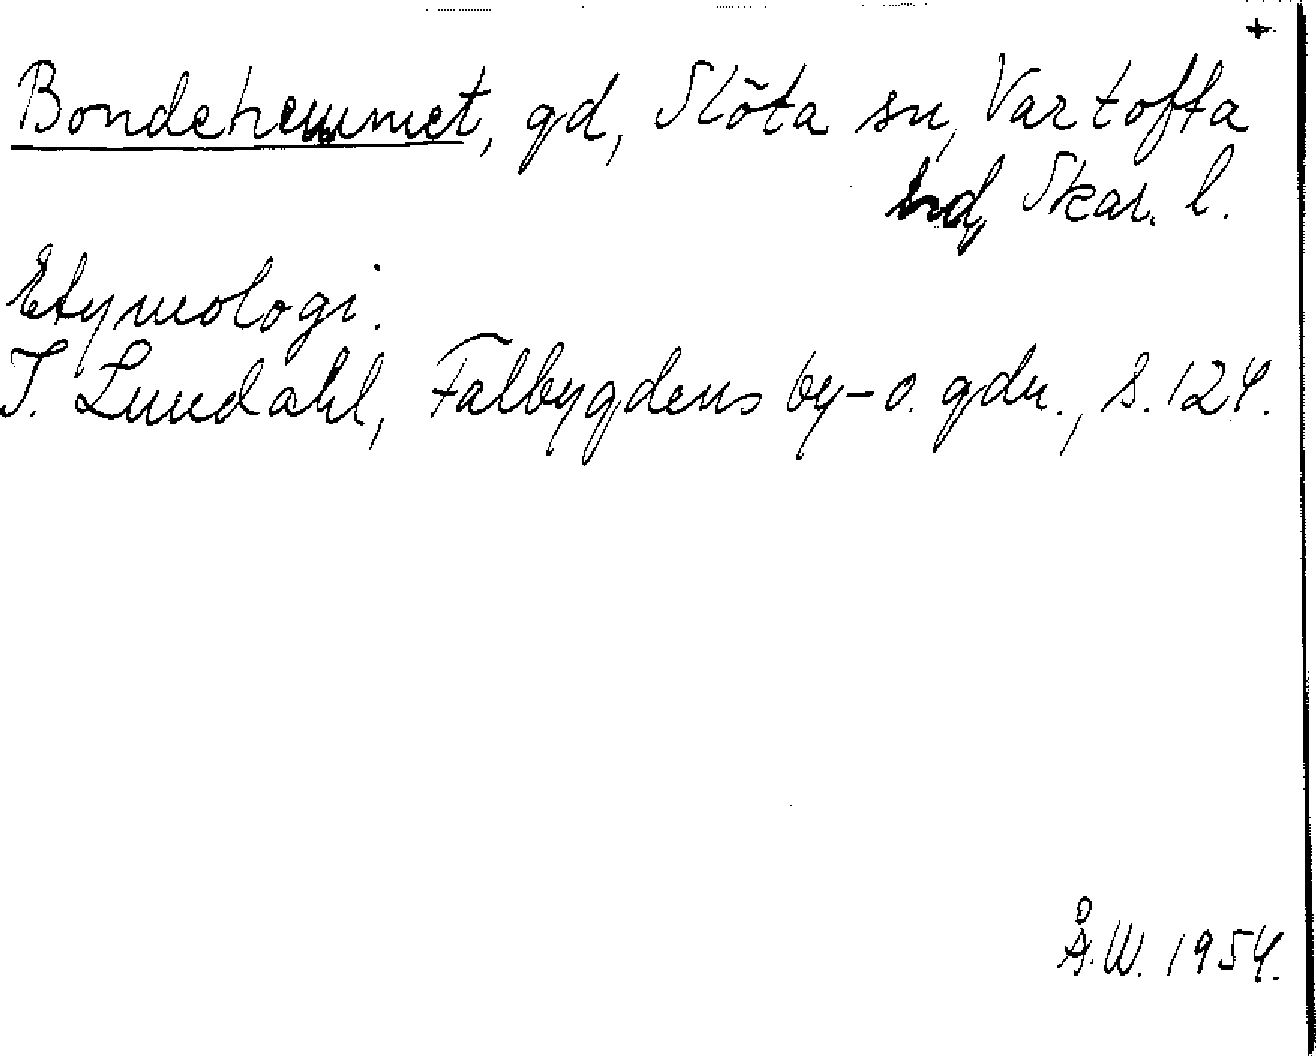 +
Bondehemmet, gd, Slöta sn, Vartofta
hd, Skar. l.
Etymologi.
I. Lundahl, Falbygdens by- o. gdn., s. 124.
Å.W. 1954.